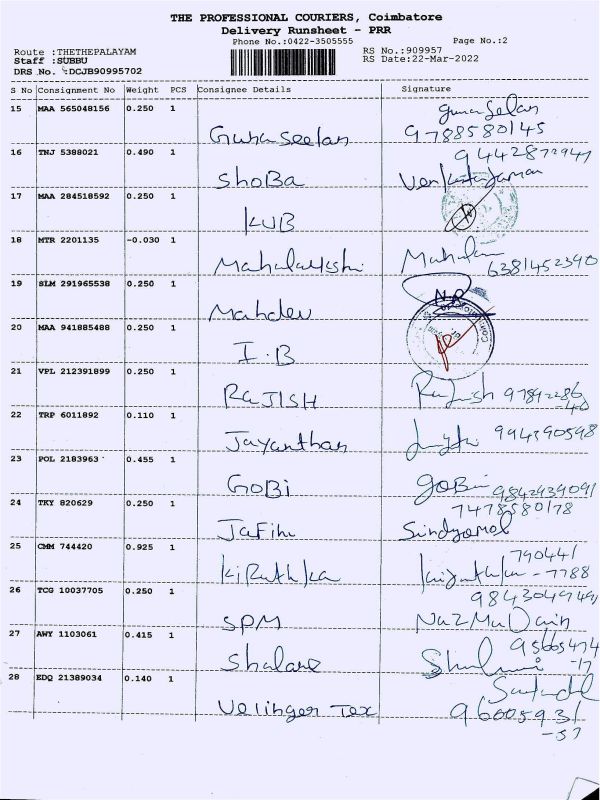 THE PROFESSIONAL COURIERS, Coimbatore
Delivery Runsheet - PRR
Phone No.:0422-3505555 Page No.:2
Route :THETHEPALAYAM RS No.:909957
Staff :SUBBU RS Date:22-Mar-2022
DRS No. :DCJB90995702
S No Consignment No Weight PCS Consignee Details Signature
15 MAA 565048156 0.250 1
Gunaseelan 9788580145
16 TNJ 5388021 0.490 1
ShoBa
17 MAA 284518592 0.250 1
KUB
18 MTR 2201135 -0.030 1
Mahalakshmi 6381452390
19 SLM 291965538 0.250 1
Mahdev
20 MAA 941885488 0.250 1
I.B
21 VPL 212391899 0.250 1
RAJISH
22 TRP 6011892 0.110 1
Jayanthan 994390598
23 POL 2183963 0.455 1
GOBi GOBi 9842939091
24 TKY 820629 0.250 1 7478580178
25 CMM 744420 0.925 1
790441
-7788
26 TCG 10037705 0.250 1
SPM
27 AWY 1103061 0.415 1
28 EDQ 21389034 0.140 1
Velinger Tex 9600593/
-37